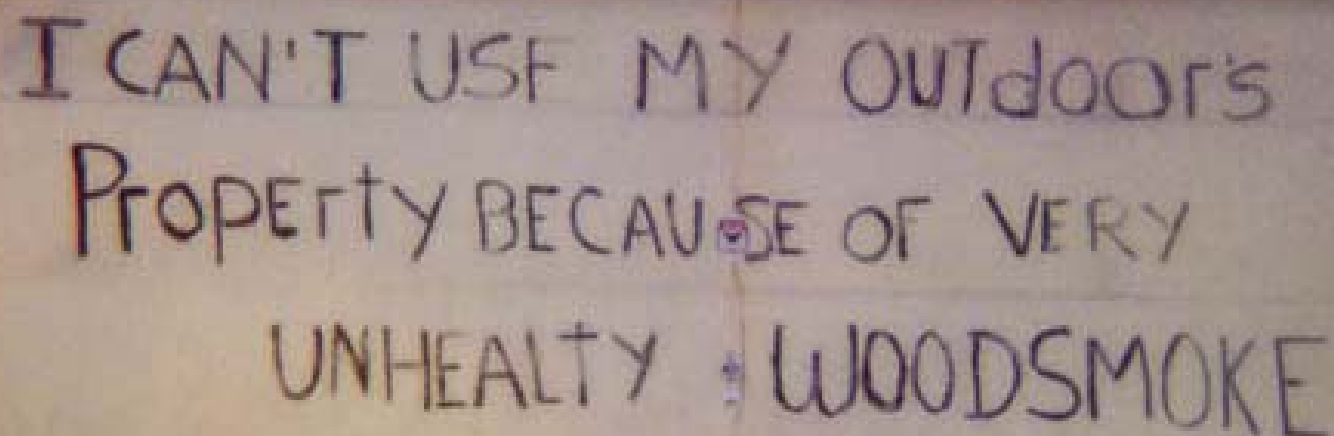 I CAN'T USE MY OUTdOOr's
PrOpErty BECAUSE OF VERY
UNHEALTY WOODSMOKE